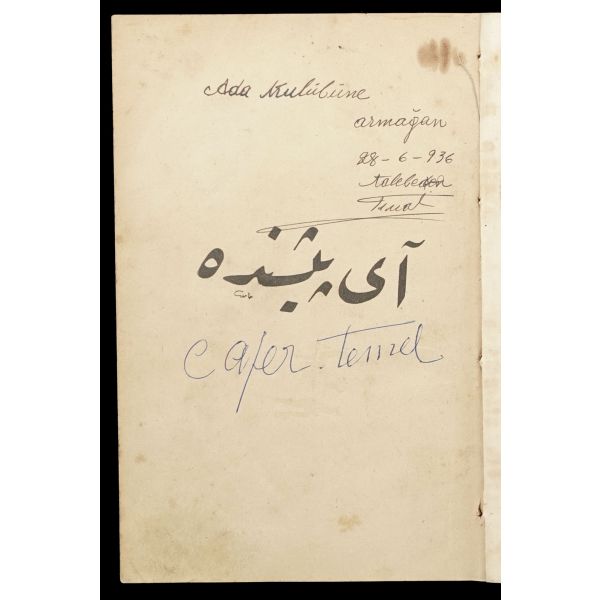 Ada Kulübüne
armağan
28-6-936
Talebeden
آی پشنده
Cafer. Temel